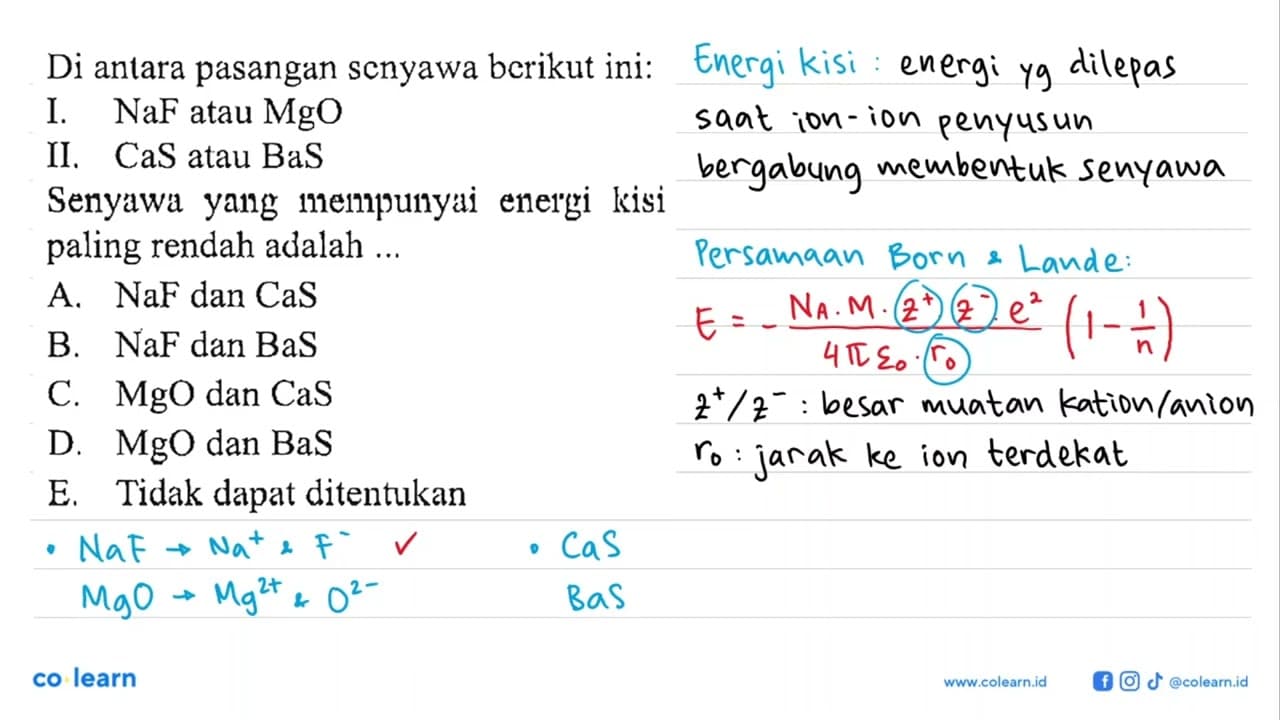 Di antara pasangan senyawa berikut ini:
I. NaF atau MgO
II. CaS atau BaS
Senyawa yang mempunyai energi kisi
paling rendah adalah ...
A. NaF dan CaS
B. NaF dan BaS
C. MgO dan CaS
D. MgO dan BaS
E. Tidak dapat ditentukan
Energi kisi : energi yg dilepas
saat ion-ion penyusun
bergabung membentuk senyawa
Persamaan Born & Lande:
E = - N_A . M . z⁺ z⁻ . e² / 4πε₀ . r₀ (1 - 1/n)
z⁺/z⁻ : besar muatan kation/anion
r₀ : jarak ke ion terdekat
• NaF → Na⁺ & F⁻ ✓
MgO → Mg²⁺ & O²⁻
• CaS
BaS
co learn
www.colearn.id
@colearn.id